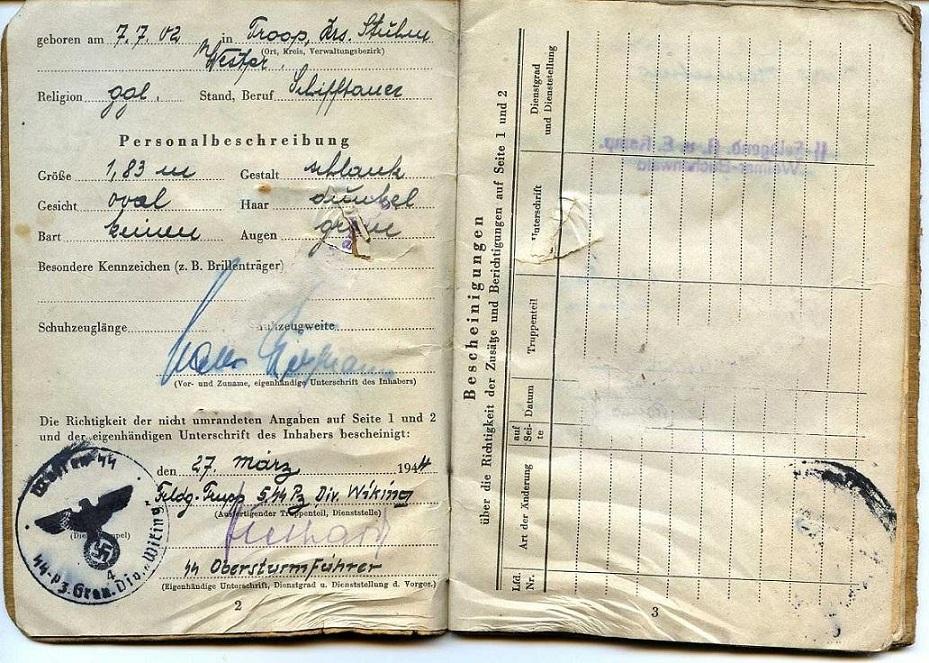 geboren am 7.7.02 in Troop, Krs. Stuhm
(Ort, Kreis, Verwaltungsbezirk)
Westpr.
Religion ggl. Stand, Beruf
Personalbeschreibung
Größe 1,83 m Gestalt schlank
Gesicht oval Haar dunkel
Bart keinen Augen
Besondere Kennzeichen (z. B. Brillenträger)
Schuhzeuglänge Schuhzeugweite
(Vor- und Zuname, eigenhändige Unterschrift des Inhabers)
Die Richtigkeit der nicht umrandeten Angaben auf Seite 1 und 2
und der eigenhändigen Unterschrift des Inhabers bescheinigt:
den 27. März 1944
Feldg. Trupp 5. SS Pz. Div. Wiking
(Ausfertigender Truppenteil, Dienststelle)
SS Obersturmführer
(Eigenhändige Unterschrift, Dienstgrad u. Dienststellung d. Vorges.)
Waffen SS
SS-Pz. Gren. Div. „Wiking“
2
Bescheinigungen
über die Richtigkeit der Zusätze und Berichtigungen auf Seite 1 und 2
Lfd. Nr.
Art der Änderung
auf Sei- te
Datum
Truppenteil
Unterschrift
Dienstgrad und Dienststellung
3